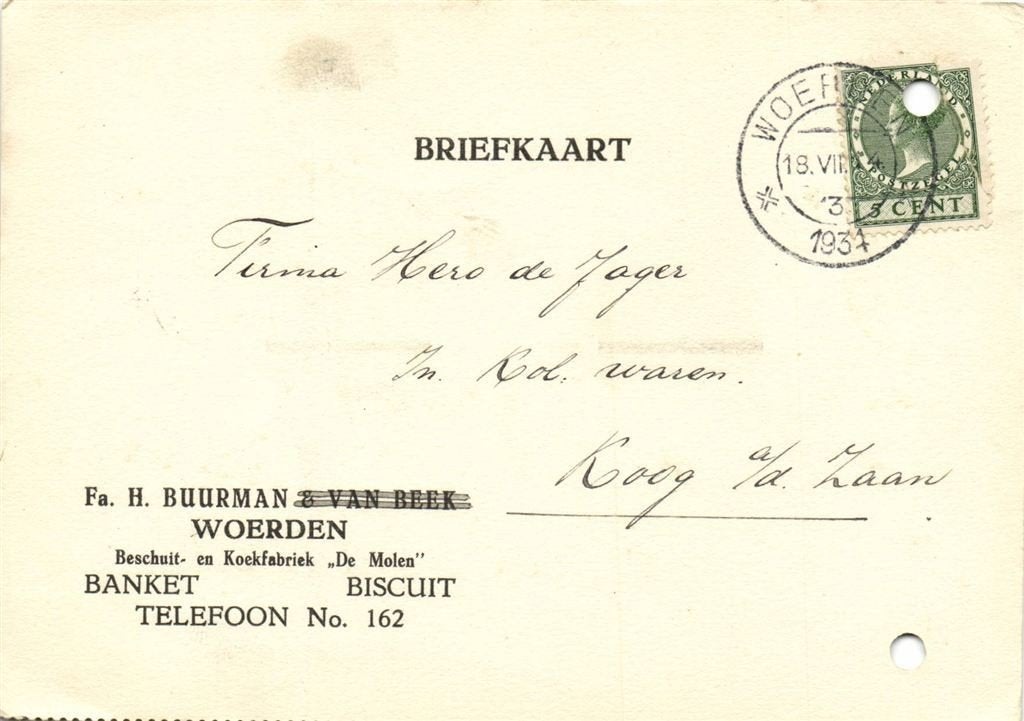 BRIEFKAART
WOERDEN
18.VII.
13
1934
NEDERLAND
POSTZEGEL
5 CENT
Firma Hero de Jager
In Kol. waren.
Koog a/d. Zaan
Fa. H. BUURMAN & VAN BEEK
WOERDEN
Beschuit- en Koekfabriek „De Molen”
BANKET BISCUIT
TELEFOON No. 162